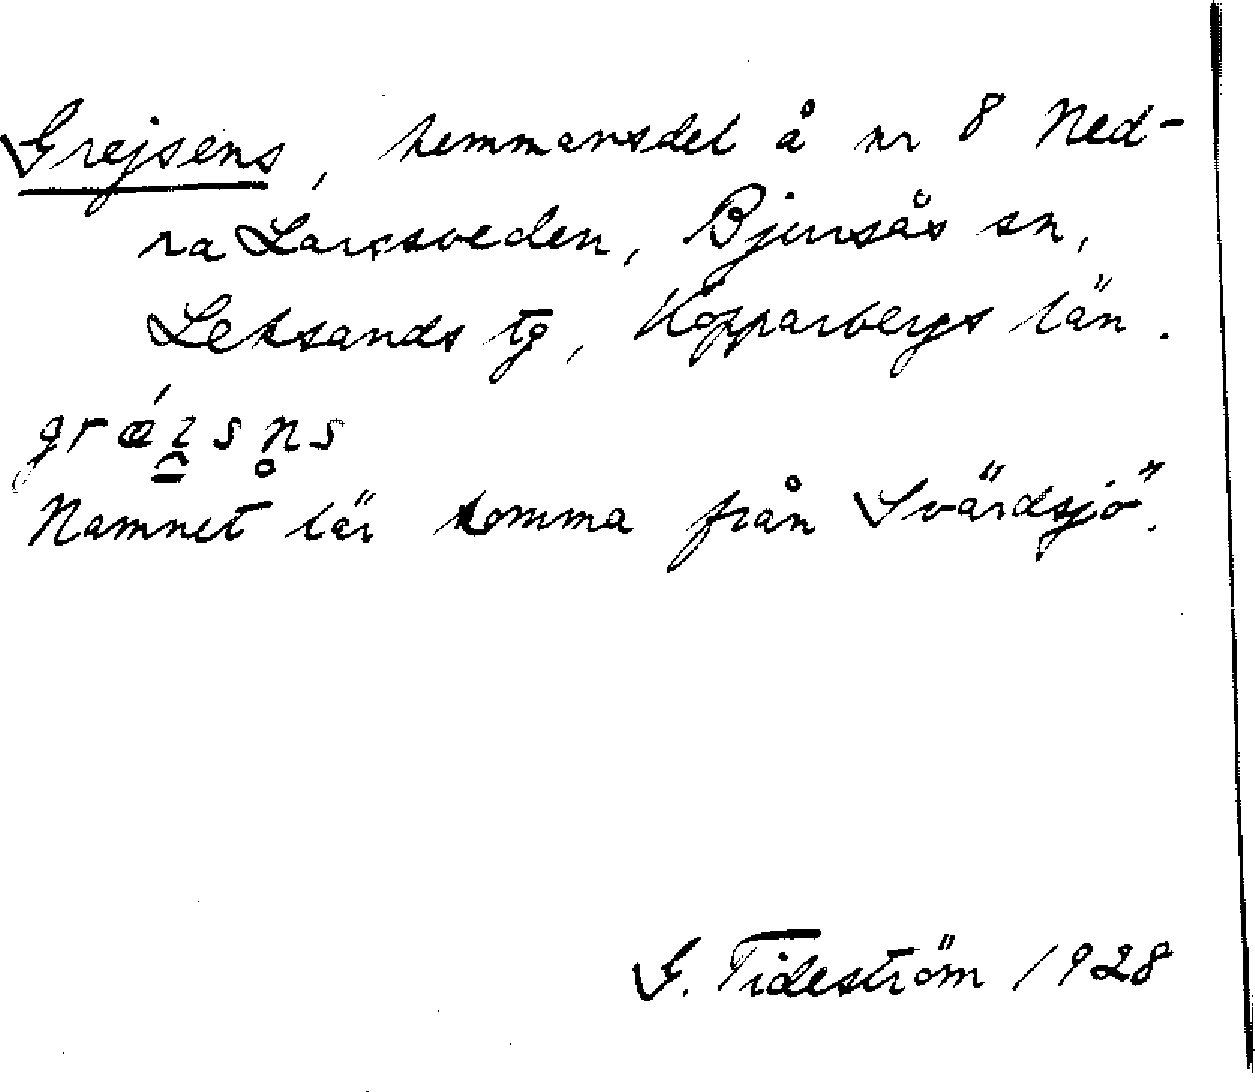 Grejsens, hemmansdel å nr 8 Ned-
ra Larssveden, Bjursås sn,
Leksands tg, Kopparbergs län.
grǽi̯sn̥s
Namnet lär komma från Svärdsjö.
G. Tideström 1928